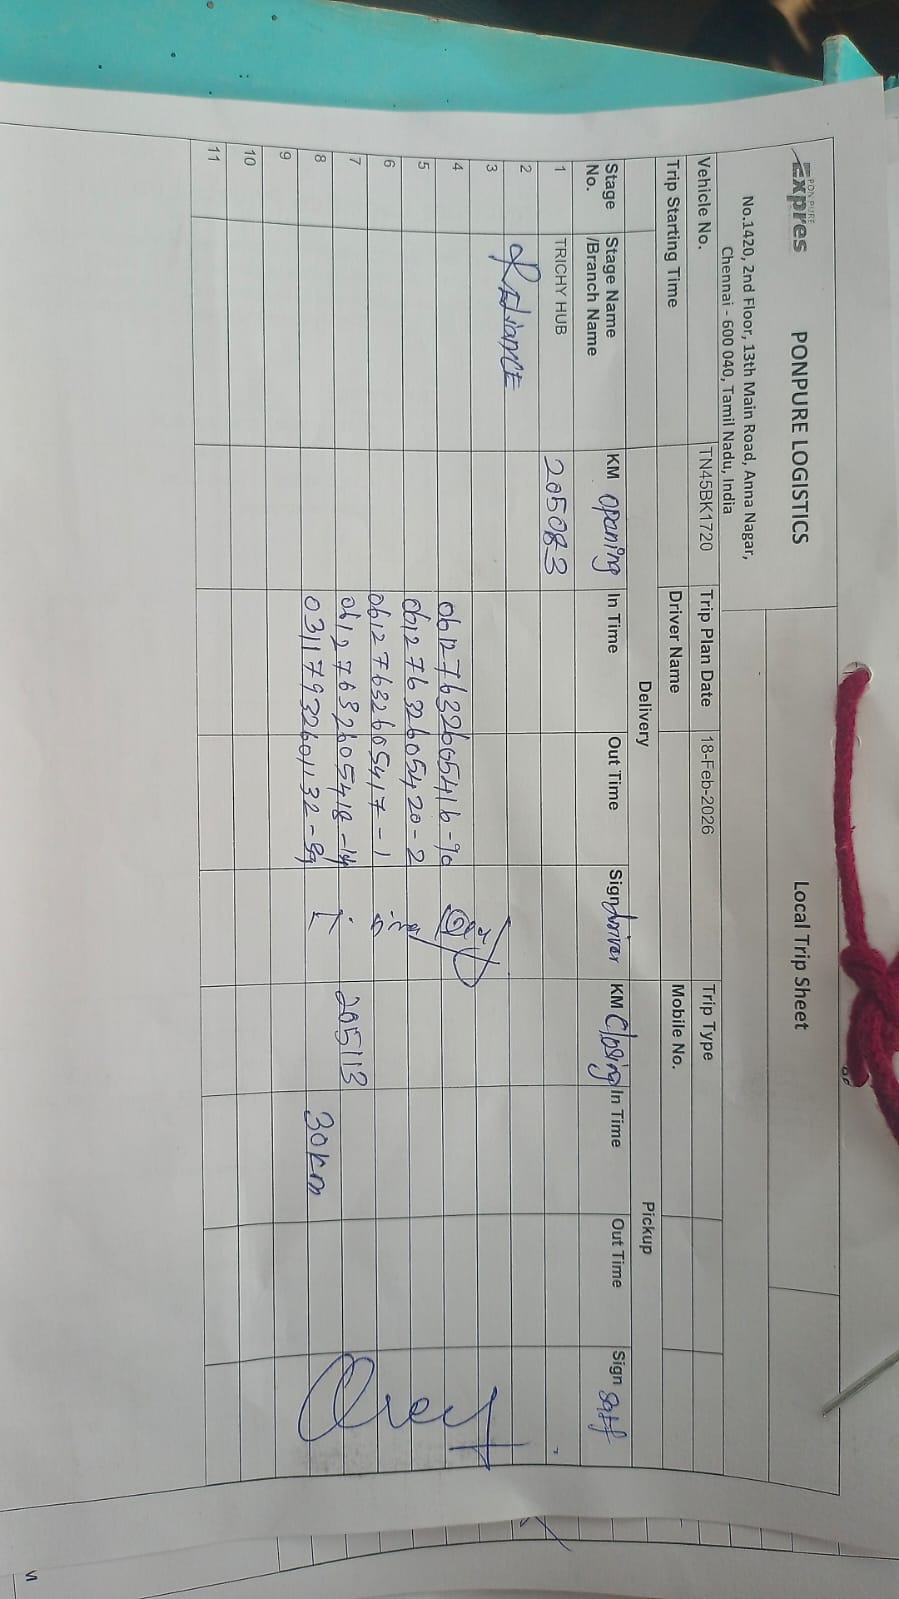 PONPURE
Expres
PONPURE LOGISTICS
Local Trip Sheet
No.1420, 2nd Floor, 13th Main Road, Anna Nagar,
Chennai - 600 040, Tamil Nadu, India
Vehicle No. TN45BK1720 Trip Plan Date 18-Feb-2026 Trip Type
Trip Starting Time Driver Name Mobile No.
Delivery Pickup
Stage No. Stage Name /Branch Name KM opaning In Time Out Time Sign driver KM Closing In Time Out Time Sign saff
1 TRICHY HUB 205083
2 Radiance
3
4 06127632605416-90
5 06127632605420-2
6 06127632605417-1
7 06127632605418-14 205113
8 03117932601132-84 30km
9
10
11